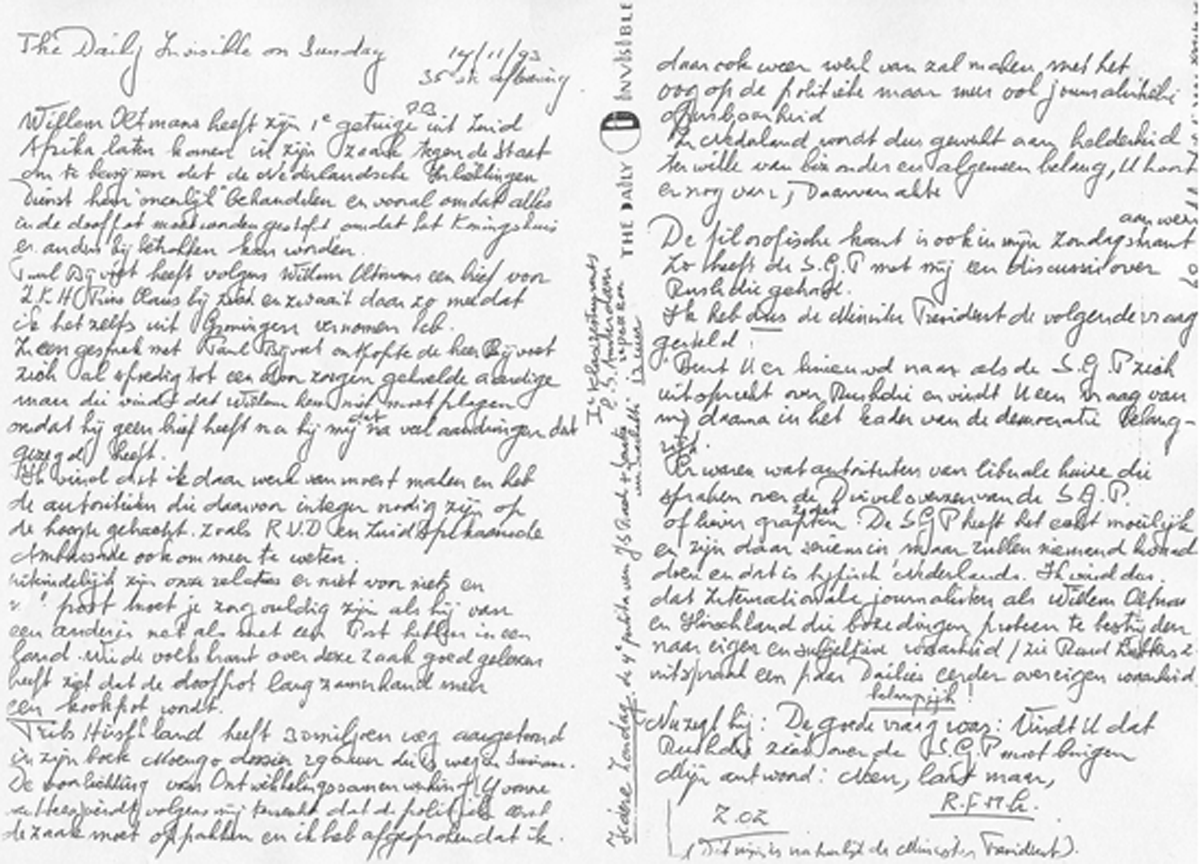 The Daily Invisible on Sunday
14/11/93
35 ste aflevering
Willem Oltmans heeft zijn 1e getuige uit Zuid
Afrika laten komen in zijn zaak tegen de Staat
om te bewijzen dat de Nederlandsche Inlichtingen
Dienst hem oneerlijk behandelen en vooral omdat alles
in de doofpot moet worden gestopt omdat het Koningshuis
er anders bij betrokken kan worden.
Paul Bijvoet heeft volgens Willem Oltmans een brief voor
Z.K.H. Prins Claus bij zich en zwaait daar zo mee dat
ik het zelfs uit Groningen vernomen heb.
In een gesprek met Paul Bijvoet ontpopte de heer Bijvoet
zich al spoedig tot een door zorgen gekwelde aardige
man die vindt dat Willem hem niet moet plagen
omdat hij geen brief heeft na hij mij na veel aandringen dat
gezegd heeft.
Ik vind dat ik daar werk van moest maken en heb
de autoriteiten die daarvoor integer nodig zijn op
de hoogte gebracht. Zoals R.V.D en Zuid Afrikaansche
Ambassade ook om meer te weten.
Uiteindelijk zijn onze relaties er niet voor niets en
post moet je zorgvuldig zijn als hij van
een ander is net als met een Post hebben in een
land. Wie de volkskrant over deze zaak goed gelezen
heeft ziet dat de doofpot langzamerhand meer
een kookpot wordt.
Frits Hirschland heeft 30 miljoen weg aangetoond
in zijn boek Moengo dossier
De voorlichting van Ontwikkelingssamenwerking (Yvonne
vindt volgens mij terecht dat de politiek eerst
de zaak moet oppakken en ik heb afgesproken dat ik
Iedere Zondag de 4e
THE DAILY INVISIBLE
daar ook weer werk van zal maken met het
oog op de politieke maar meer ook journalistieke
openbaarheid
In Nederland wordt dus gewerkt aan helderheid
ter wille van bizonder en algemeen belang, U hoort
er nog van, Daarvan akte
De filosofische kant is ook in mijn zondagskrant
Zo heeft de S.G.P met mij een discussie over
Rushdie gehad.
Ik heb dus de Minister President de volgende vraag
gesteld
Bent U er benieuwd naar als de S.G.P zich
uitspreekt over Rushdie en vindt U een vraag van
mij daarna in het kader van de democratie belang-
rijk.
Er waren wat autoriteiten van liberale huize die
spraken over de Duivelsverzen van de S.G.P.
of liever grapten. De SGP heeft het eerst moeilijk
en zijn daar serieus in maar zullen niemand kwaad
doen en dat is typisch Nederlands. Ik vind dus
dat Internationale journalisten als Willem Oltmans
en Hirschland die boze dingen proberen te bestrijden
naar eigen en subjectieve waarheid / zie Ruud Lubbers z'n
uitspraak een paar Dailies eerder over eigen waarheid
belangrijk!
Nu zegt hij: De goede vraag was: Vindt U dat
Rushdie zich over de S.G.P moet buigen
Mijn antwoord: Neen, laat maar,
R.F.M.K.
Z.O.Z
(Dat mijn is natuurlijk de Minister President).